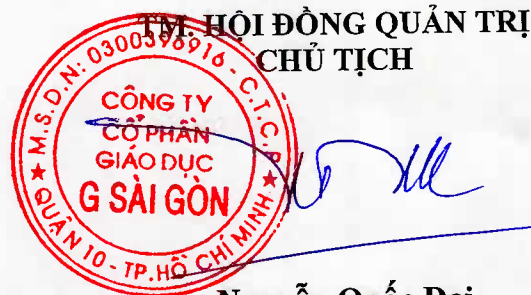 TM. HỘI ĐỒNG QUẢN TRỊ
CHỦ TỊCH
M.S.D.N: 0300396916 - C.T.C.P
CÔNG TY
CỔ PHẦN
GIÁO DỤC
G SÀI GÒN
★ QUẬN 10 - TP.HỒ CHÍ MINH ★
Nguyễn Quốc Đại